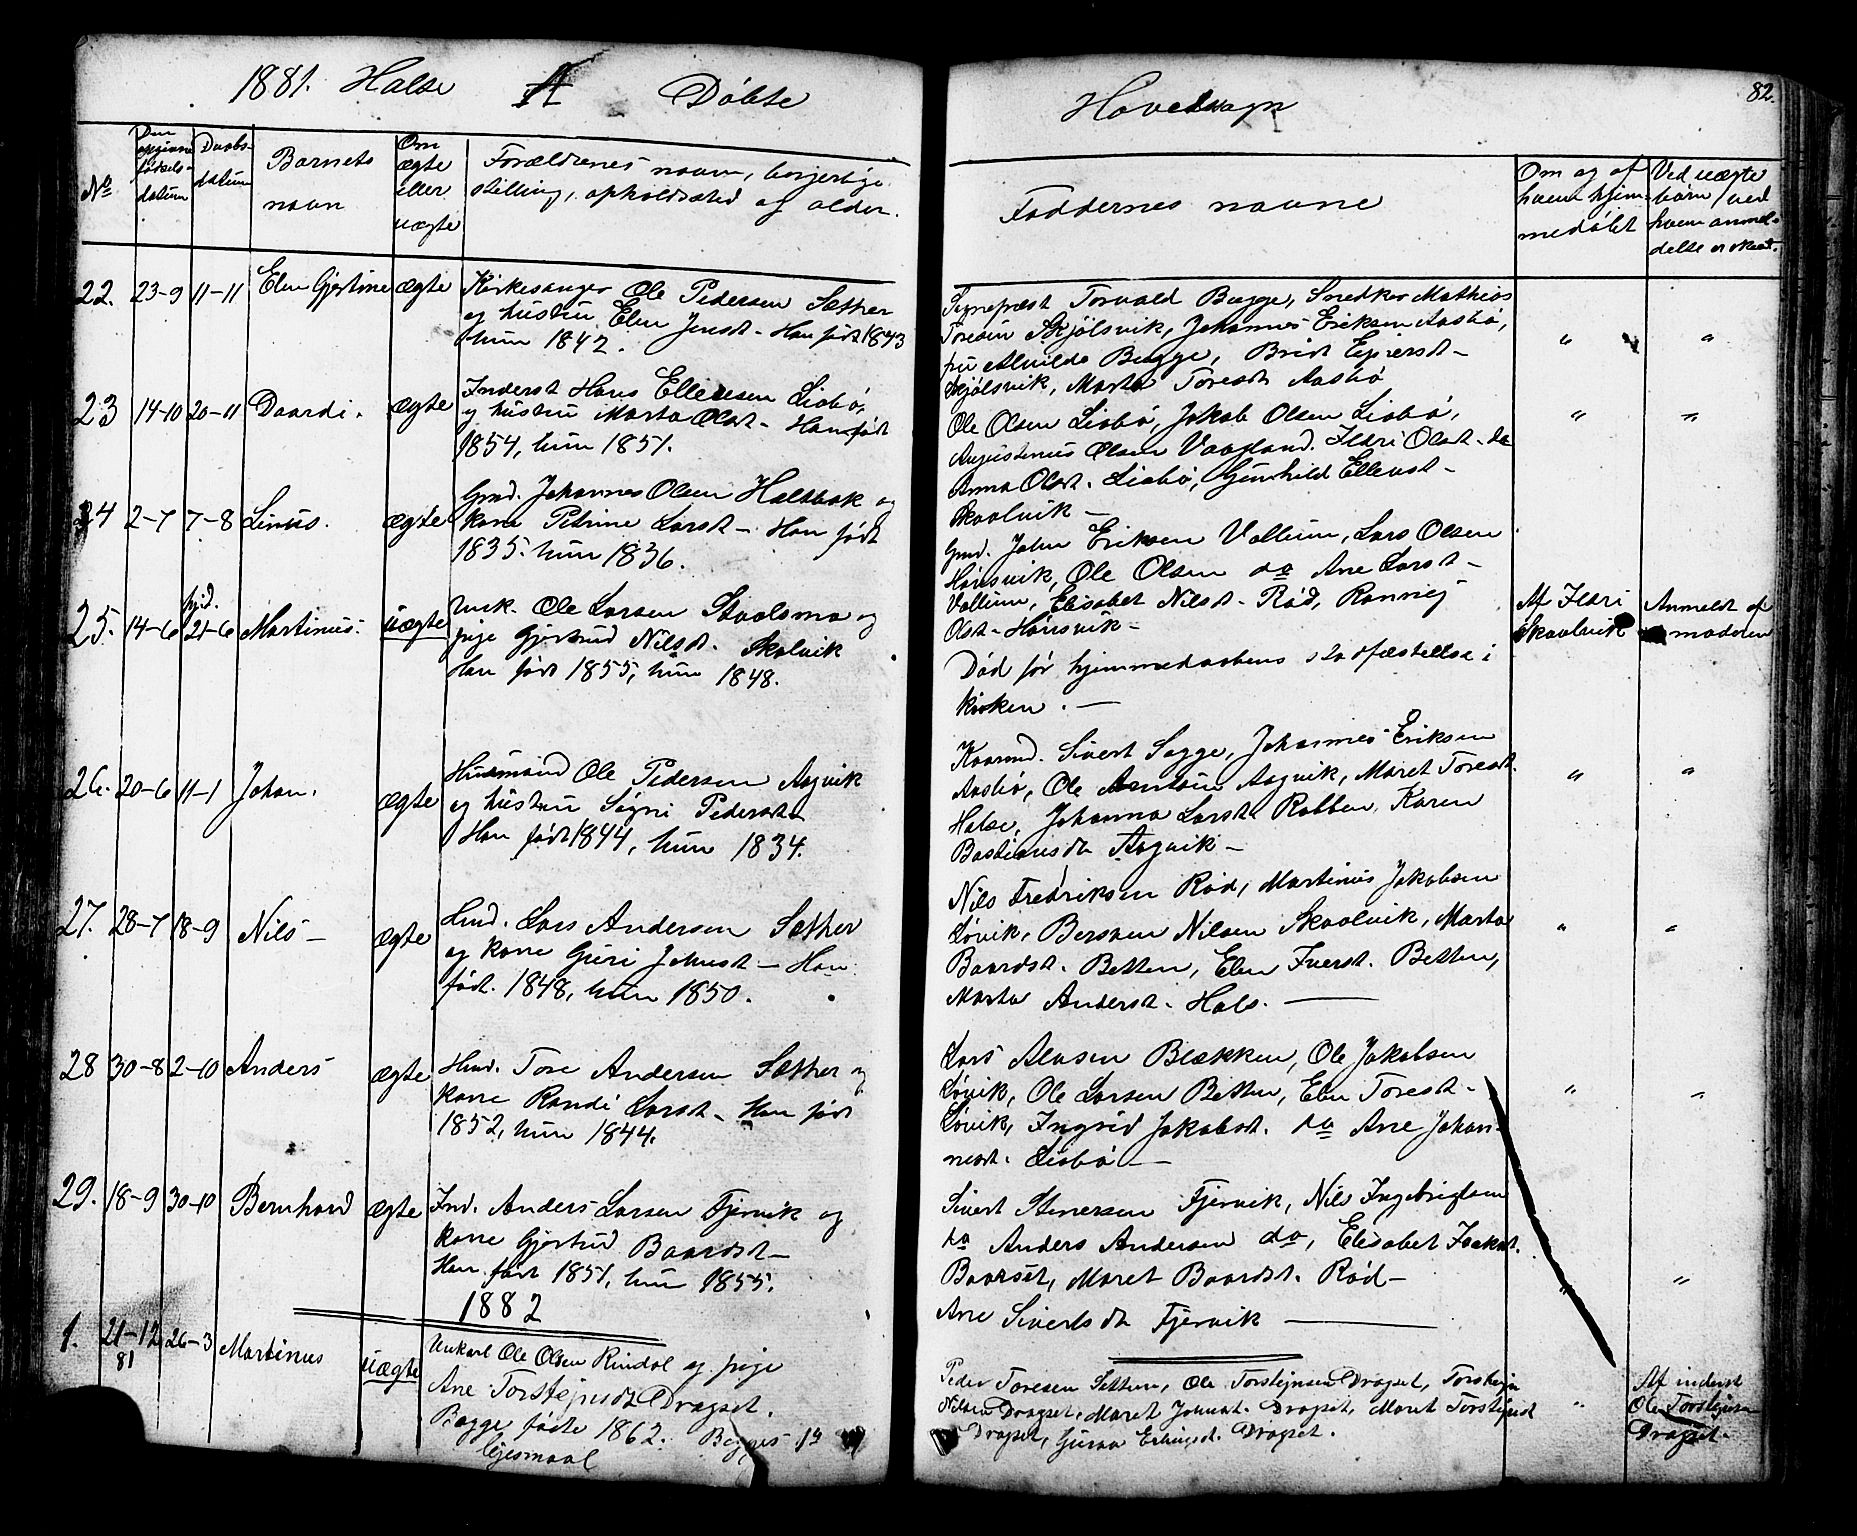 1881. Halse A Døbte
No
Den opgivne fødsels-datum
Daabs-datum
Barnets navn
Om ægte eller uægte
Forældrenes navn, borgerlige
stilling, opholdssted og alder.
22. 23-9 11-11 Elen Gjertine ægte Kirkesanger Ole Pedersen Sæther
og hustru Elen Jensdt. Han født 1843
hun 1842.
23 14-10 20-11 Baardi. ægte Inderst Hans Ellevsen Liabø,
og hustru Marta Olsdt. Han født
1854, hun 1851.
24 2-7 7-8 Linus. ægte Gmd. Johannes Olsen Haltbak og
kone Petrine Larsdt. Han født
1835. hun 1836.
25. 14-6 hjd. 21-6 Martinus. uægte Unk. Ole Larsen Staalsmo og
pige Gjertrud Nilsdt. Skalvik
Han født 1855, hun 1848.
26. 20-6 11-1 Johan. ægte Husmand Ole Pedersen Aagvik
og hustru Signi Pedersdt.
Han født 1844, hun 1834.
27. 28-7 18-9 Nils ægte Lars Andersen Sæther
og kone Guri Johnsdt. Han
født. 1848, hun 1850.
28 30-8 2-10 Anders ægte Tore Andersen Sæther og
kone Randi Larsdt. Han født
1852, hun 1844.
29. 18-9 30-10 Bernhard ægte Ind. Anders Larsen Fjervik og
kone Gjertrud Baardsdt.
Han født 1851, hun 1855.
1882
1. 21-12 81 26-3 Martinus uægte Unkarl Ole Olsen Rindal og pige
Ane Torstejnsdt Dragset.
Begge fødte 1862. Begges 1ste
lejermaal
Hovedsogn 82.
Faddernes navne
Om og af hvem hjem-
medøbt
Ved uægte børn, ved
hvem anmel-
delse er skeet.
Sognepræst Torvald Bugge, Snedker Mathias
Toresen Skjølsvik, Johannes Eriksen Aasbø,
fru Alvilde Bugge, Brit
Skjølsvik, Marta Toresdt Aasbø
Ole Olsen Liabø, Jakob Olsen Liabø,
Augustinus Olsen Vaagland. Ildri Olsdt. do
Anna Olsdt. Liabø, Gunhild Ellevsdt.
Skaalvik
Gmd. John Eriksen Vollum, Lars Olsen
Hønsvik, Ole Olsen do Ane Larsdt.
Vollum, Elisabet Nilsdt. Rød, Rannej
Olsdt. Hønsvik
Død før hjemmedaabens stadfæstelse i
kirken.
Af Ildri
Skaalvik
Anmeldt af
moderen
Sivert Sogge, Johannes Eriksen
Aasbø, Ole Antonsen Aagvik, Maret Toresdt.
Halse, Johanna Larsdt Rabben, Karen
Bastiansdt Aagvik
Nils Fredriksen Rød, Martinus Jakobsen
Løvik, Bersven Nilsen Skaalvik, Marta
Baardsdt. Betten, Elen Iversdt. Betten,
Marta Andersdt. Hals.
Lars Alasen Blækken, Ole Jakobsen
Løvik, Ole Larsen Betten, Elen Toresdt.
Løvik, Ingrid Jakobsdt. do Ane Johan-
nesdt. Liabø
Sivert Stenersen Fjervik, Nils Ingebrigtsen
do Anders Andersen do, Elisabet Isaksdt.
Baarset, Maret Baardsdt. Rød
Ane Sivertsdt Fjervik
Peder Toresen Settem, Ole Torstejnsen Dragset, Torstejn
Nilsen Dragset, Maret Johnsdt. Dragset, Maret Torstejnsdt
Dragset, Guraa Erlingsdt. Dragset.
Af inderst
Ole Torstejnsen
Dragset.